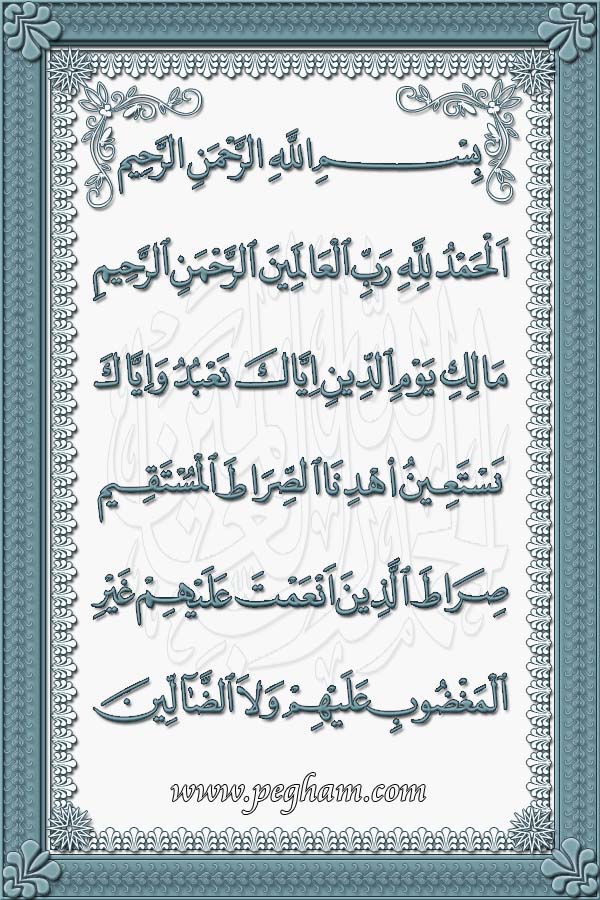 بِسْمِ اللَّهِ الرَّحْمَنِ الرَّحِيمِ
اَلْحَمْدُ لِلَّهِ رَبِّ ٱلْعَالَمِينَ ٱلرَّحْمَنِ ٱلرَّحِيمِ
مَالِكِ يَوْمِ ٱلدِّينِ اِيَّاكَ نَعْبُدُ وَاِيَّاكَ
نَسْتَعِينُ اُهْدِنَا ٱلصِّرَاطَ ٱلْمُسْتَقِيم
صِرَاطَ ٱلَّذِينَ اَنْعَمْتَ عَلَيْهِمْ غَيْرِ
ٱلْمَغْضُوبِ عَلَيْهِمْ وَلاَ ٱلضَّآلِّين
www.pegham.com